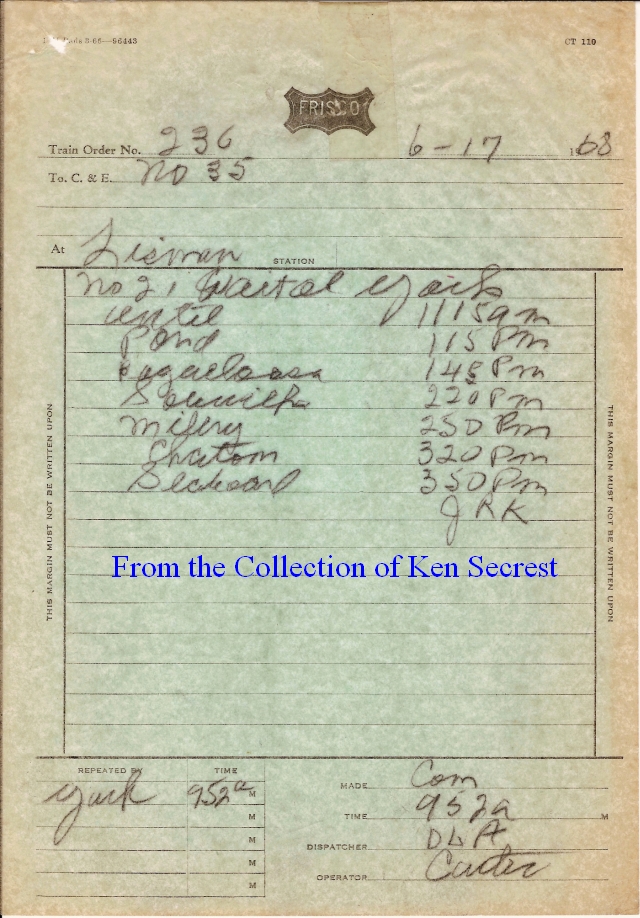 3-66—96443 CT 110
FRISCO
Train Order No. 236 6-17 1968
To. C. & E. No 35
At Lisman STATION
No 21 Wait at York
until 1115am
Pond 115 Pm
148 Pm
Souwilpa 220 Pm
Millry 250 Pm
Chatom 320 Pm
350 Pm
JRK
THIS MARGIN MUST NOT BE WRITTEN UPON
THIS MARGIN MUST NOT BE WRITTEN UPON
From the Collection of Ken Secrest
REPEATED BY TIME
York 952a M
M
M
M
M
MADE Com
TIME 952a M
DISPATCHER DLA
OPERATOR Carter